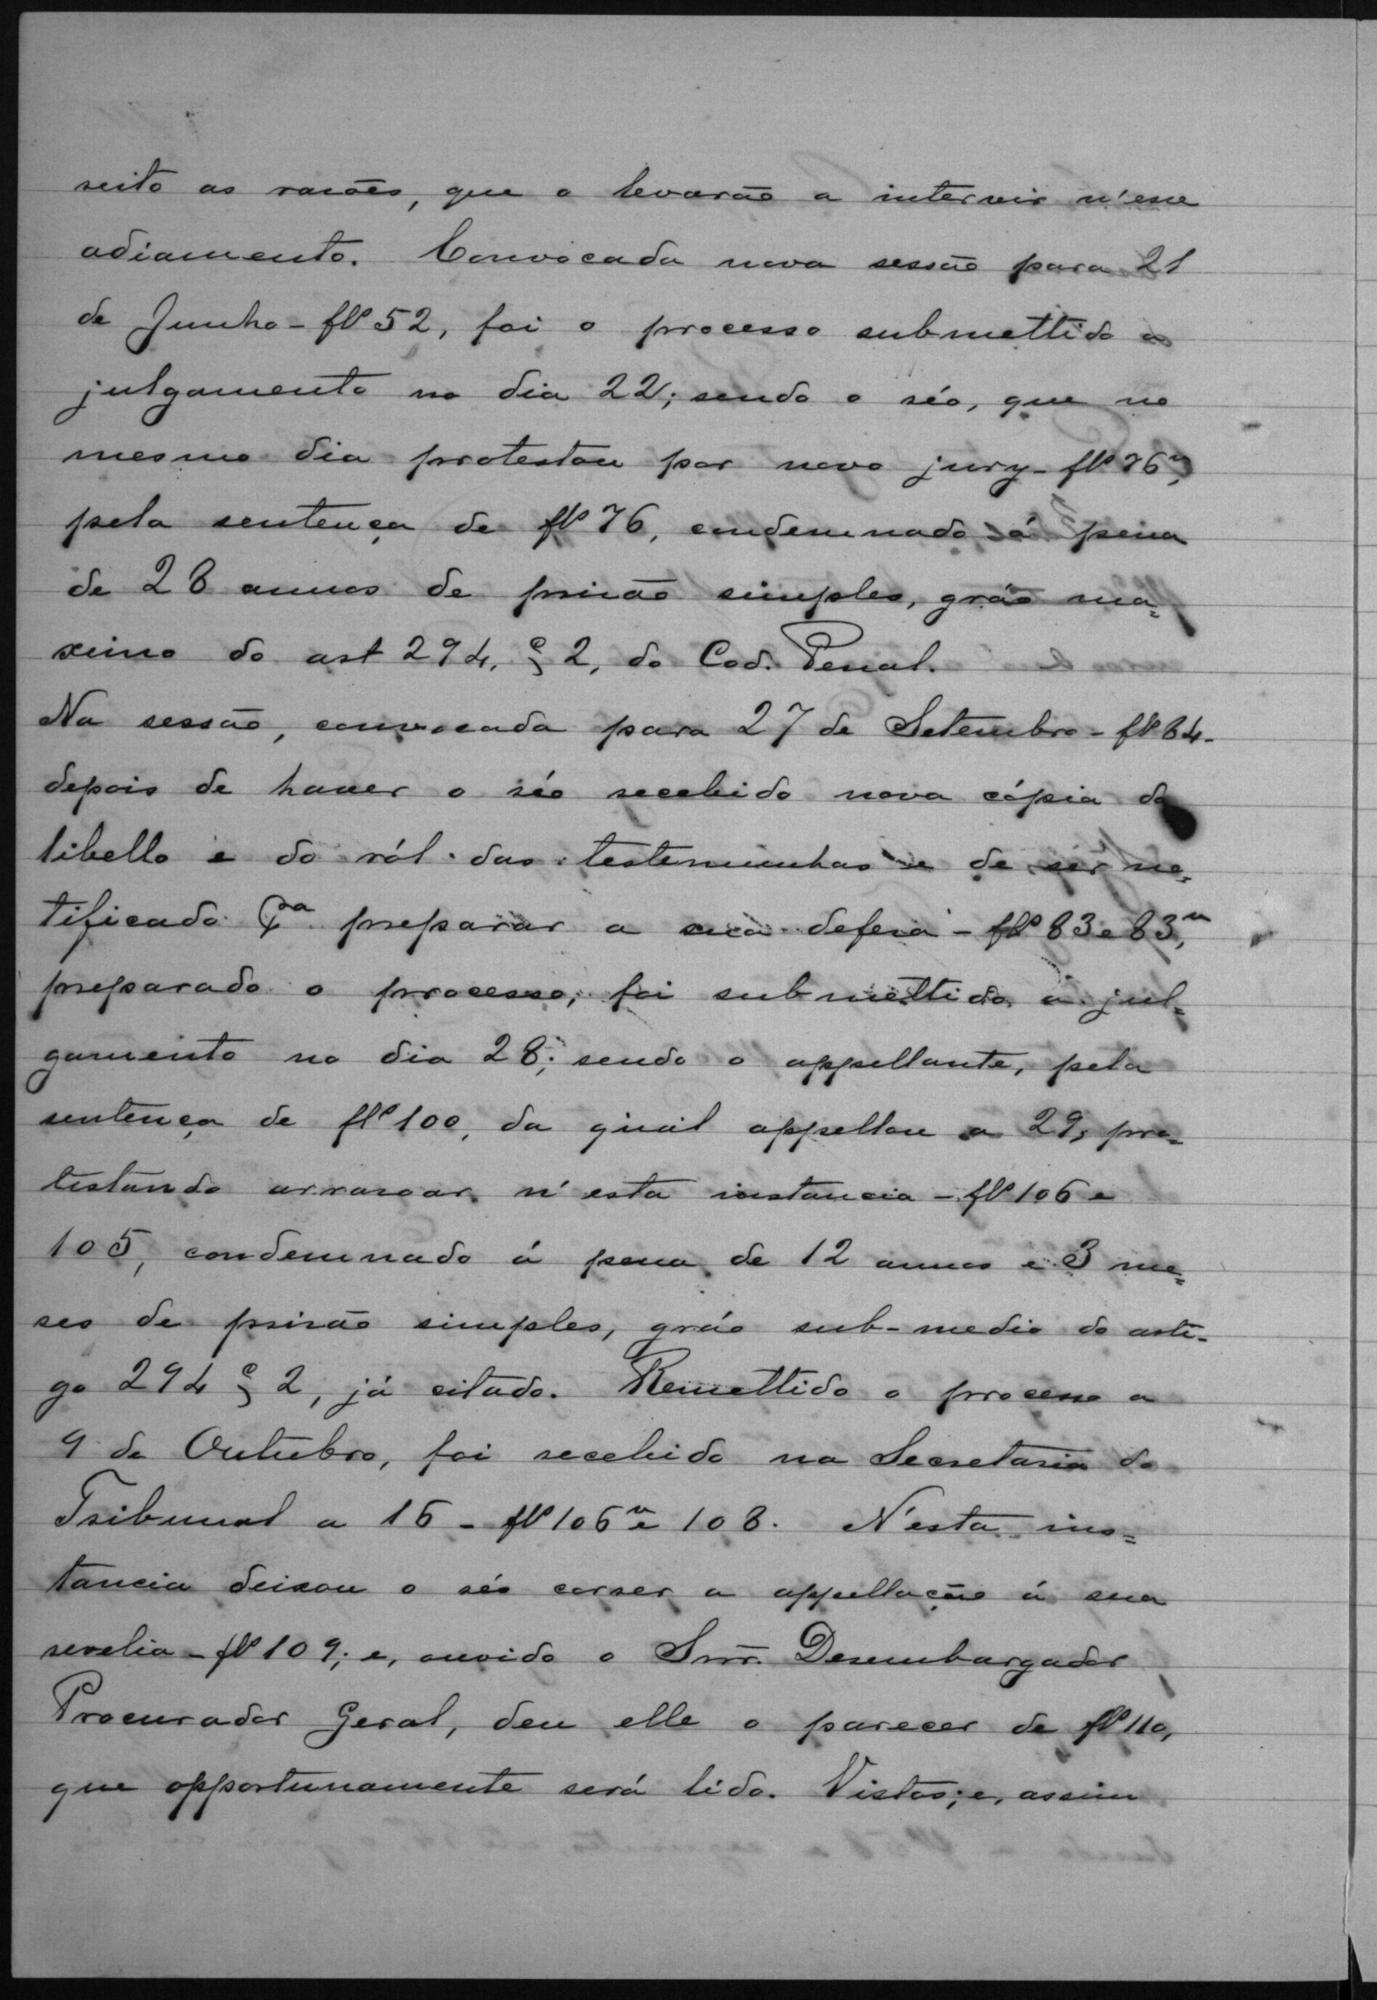 reito as rasões, que o levarão a intervir n'esse
adiamento. Convocada nova sessão para 21
de Junho - fls 52, foi o processo submettido a
julgamento no dia 22; sendo o réo, que no
mesmo dia protestou por novo jury - fls 76v,
pela sentença de fls 76, condemnado á pena
de 28 annos de prisão simples, gráo ma=
ximo do art 294, § 2, do Cod. Penal.
Na sessão, convocada para 27 de Setembro - fls 84 -
depois de haver o réo recebido nova cópia do
libello e do ról das testemunhas e de ser no=
tificado pa preparar a sua defesa - fls 83 e 83v,
preparado o processo, foi submettido a jul=
gamento no dia 28; sendo o appellante, pela
sentença de fls 100, da qual appellou a 29, pro=
testando arrasoar n'esta instancia - fls 106 e
105, condemnado á pena de 12 annos e 3 me=
ses de prisão simples, gráo sub-medio do arti-
go 294 § 2, já citado. Remettido o processo a
9 de Outubro, foi recebido na Secretaria do
Tribunal a 16 - fls 106v e 108. N'esta ins=
tancia deixou o réo correr a appellação á sua
revelia - fls 109; e, ouvido o Snr. Desembargador
Procurador Geral, deu elle o parecer de fls 110,
que opportunamente será lido. Vistos; e, assim